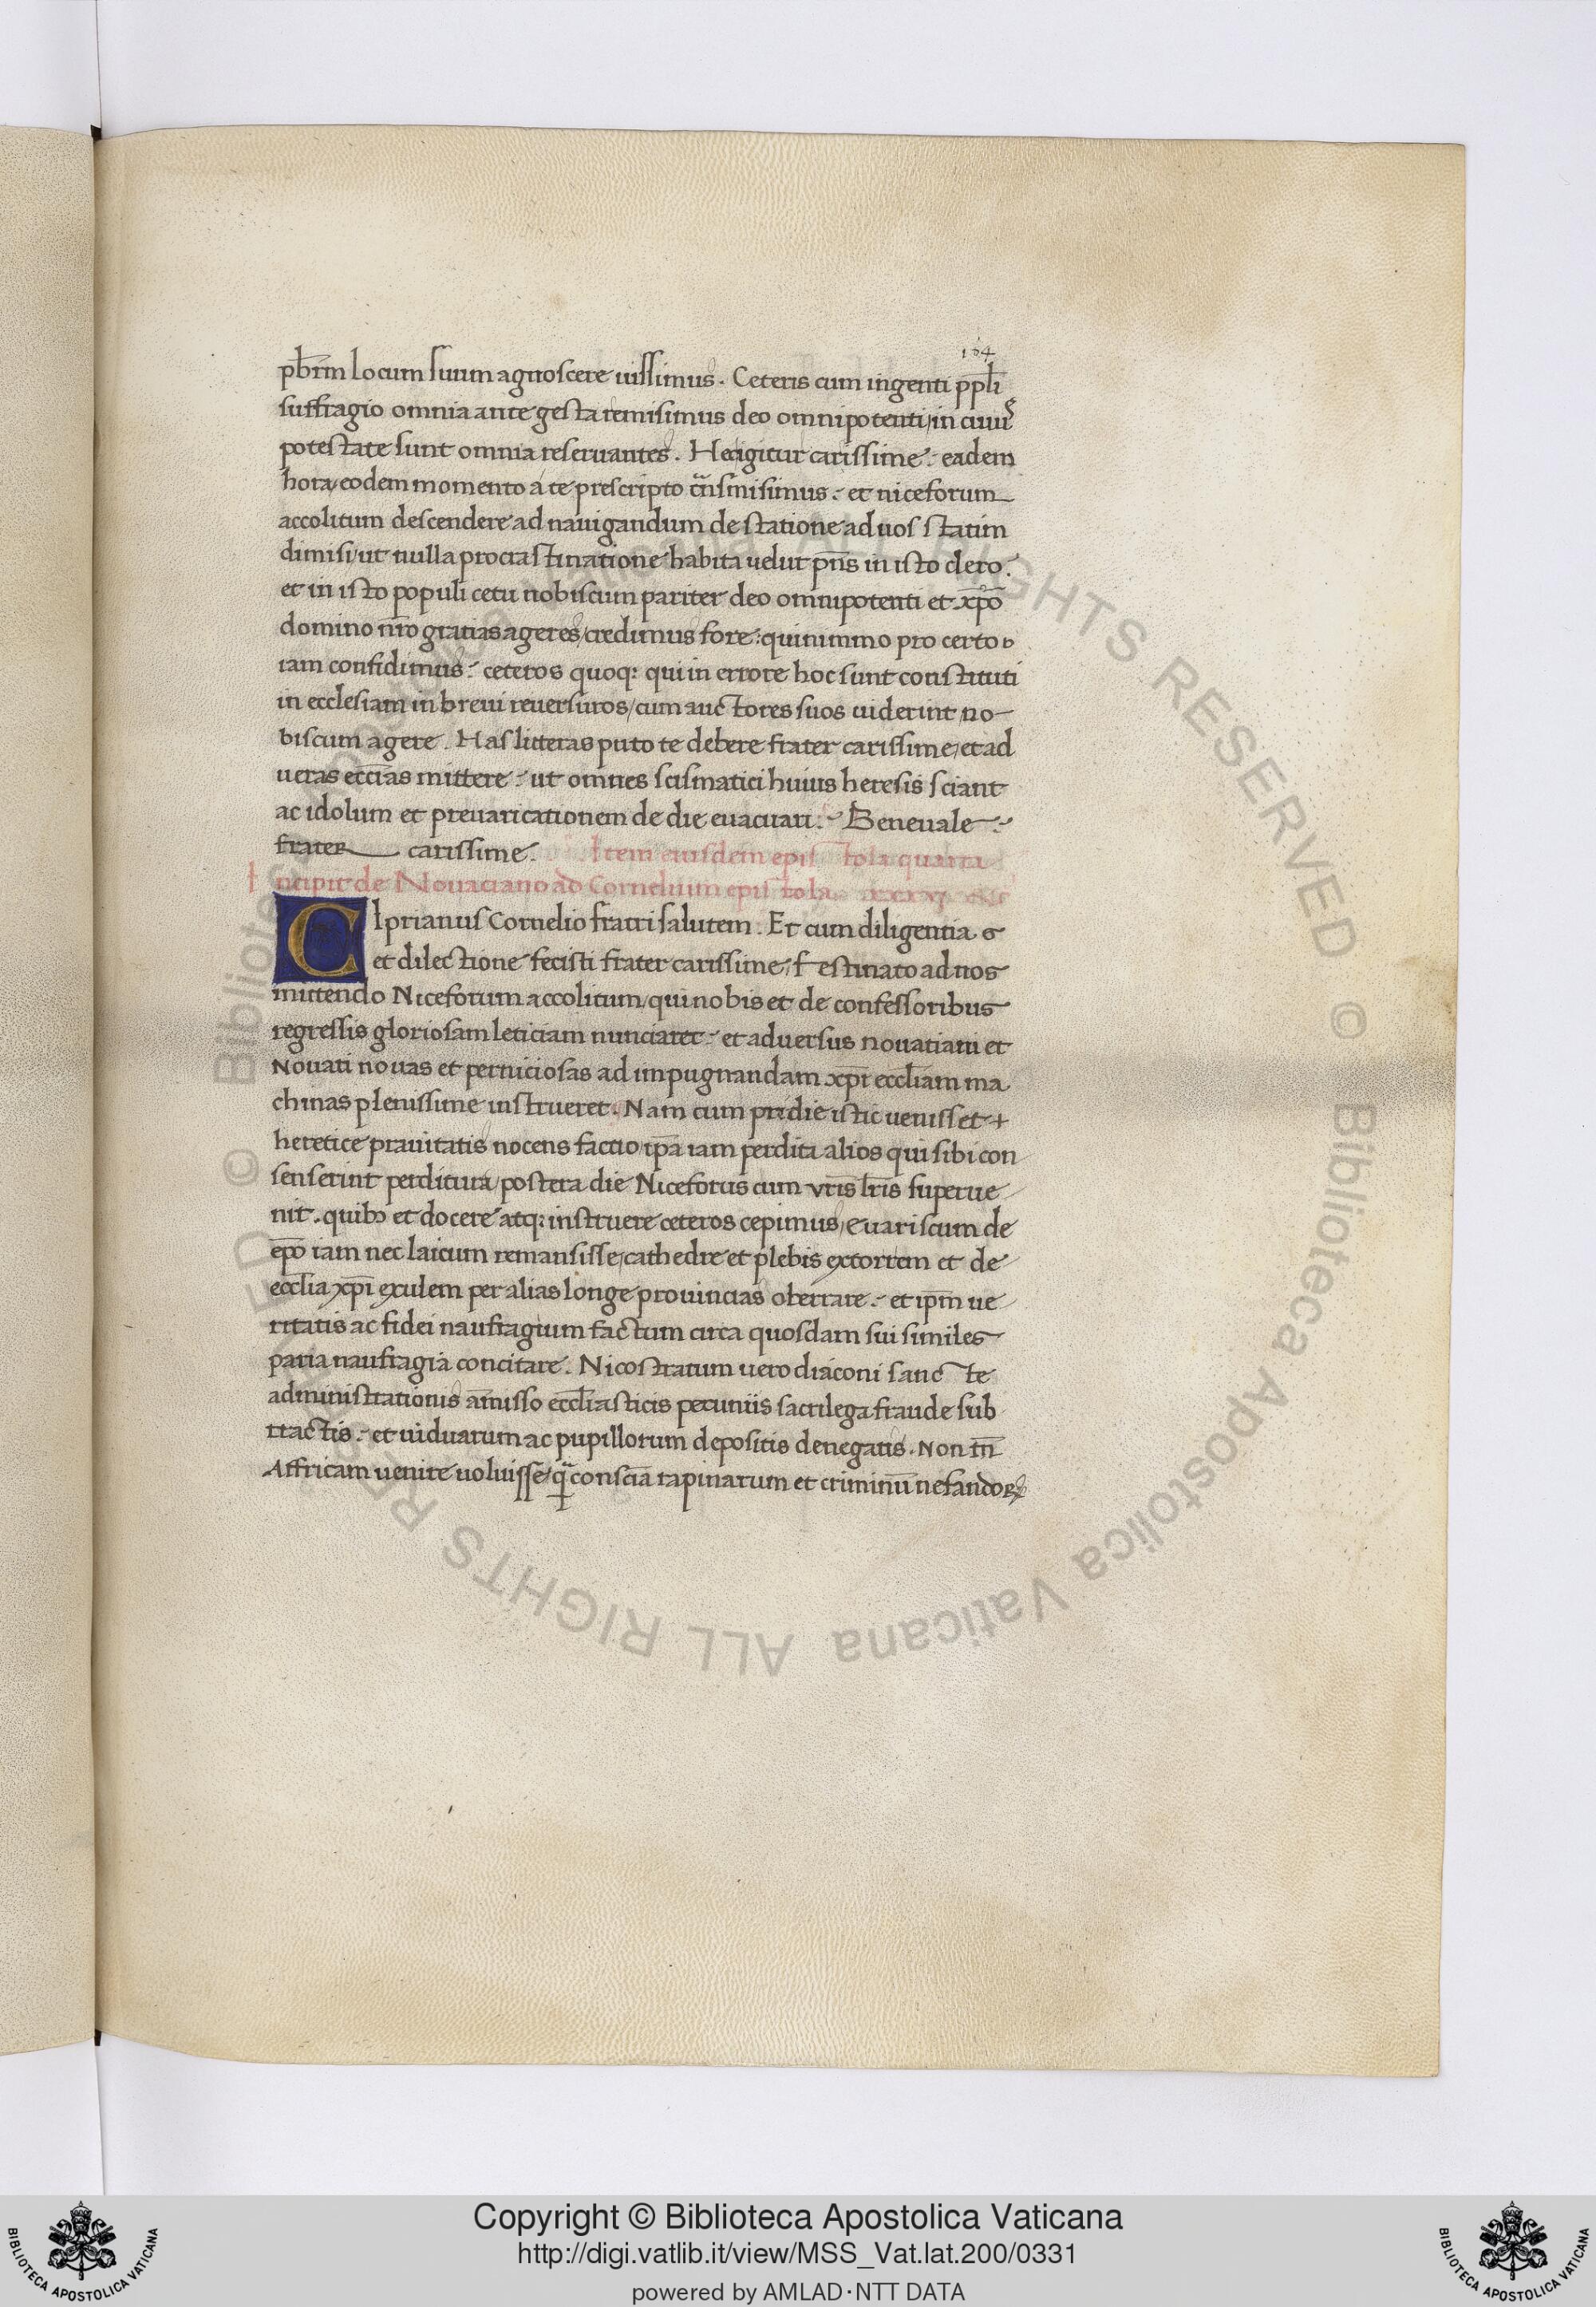 164
pb̄rm locum suum agnoscere iussimus. Ceteris cum ingenti ppl̄i
suffragio omnia ante gesta remisimus deo omnipotenti, in cuiu᷒
potestate sunt omnia reservantes. Hec igitur carissime: eadem
hora, eodem momento a te prescripto t̄nsmisimus: et niceforum
accolitum descendere ad navigandum de statione ad uos statim
dimisi, ut nulla procrastinatione habita velut p̄ns in isto clero:
et in isto populi cetu nobiscum pariter deo omnipotenti et xp̄o
domino nr̄o gratias ageres, credimus fore: quinimmo pro certo
iam confidimus: ceteros quoq: qui in errore hoc sunt constituti
in ecclesiam in brevi reversuros, cum auctores suos viderint no
biscum agere. Has litteras puto te debere frater carissime, et ad
ueras ecc̄ias mittere: ut omnes scismatici huius heresis sciant
ac idolum et prevaricationem de die evacuari: Bene uale:
frater carissime. Item eiusdem epistola quarta
Incipit de Novaciano ad Cornelium epistola.
CIprianus Cornelio fratri salutem. Et cum diligentia
et dilectione fecisti frater carissime, festinato ad nos
mittendo Niceforum accolitum, qui nobis et de confessoribus
regressis gloriosam leticiam nunciaret: et adversus novatiani et
Novati novas et perniciosas ad impugnandam xp̄i eccl̄iam ma
chinas plenissime instrueret. Nam cum pridie istic venisset
heretice pravitatis nocens factio, ip̄a iam perdita alios qui sibi con
senserint perditura, postera die Niceforus cum vr̄is lr̄is superve
nit. quibꝫ et docere atq: instruere ceteros cepimus, evariscum de
ep̄o iam nec laicum remansisse, cathedre et plebis extorrem et de
eccl̄ia xp̄i exulem per alias longe provincias oberrare: et ip̄m ve
ritatis ac fidei naufragium factum circa quosdam sui similes
paria naufragia concitare. Nicostratum uero diaconi sancte
administrationis amisso eccl̄iasticis pecuniis sacrilega fraude sub
tractis: et uiduarum ac pupillorum depositis denegatis. Non tn̄
Affricam uenire uoluisse, q̄ conscia rapinarum et criminū nefandoꝝ
Copyright © Biblioteca Apostolica Vaticana
http://digi.vatlib.it/view/MSS_Vat.lat.200/0331
powered by AMLAD·NTT DATA